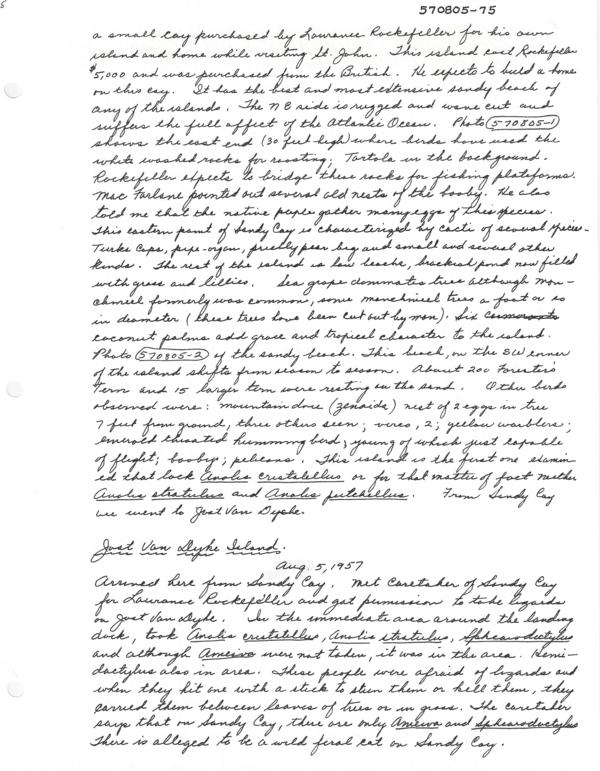 570805-75
5
a small cay purchased by Laurance Rockefeller for his own
island and home while visiting St. John. This island cost Rockefeller
$5,000 and was purchased from the British. He expects to build a home
on this cay. It has the best and most extensive sandy beach of
any of the islands. The NE side is rugged and wave cut and
suffers the full affect of the Atlantic Ocean. Photo (570805-1)
shows the east end (30 feet high) where birds have used the
white washed rocks for roosting; Tortola in the background.
Rockefeller expects to bridge these rocks for fishing plateforms.
MacFarlane pointed out several old nests of the booby. He also
told me that the native people gather many eggs of this species.
This eastern point of Sandy Cay is characterized by cacti of several species-
Turks Caps, pipe-organ, prickly pear big and small and several other
kinds. The rest of the island is low beachs, brackish pond now filled
with grass and lillies. Sea grape dominates trees although man-
chineel formerly was common, some manchineel trees a foot or so
in diameter (these trees have been cut out by man). Six
coconut palms add grace and tropical character to the island.
Photo (570805-2) of the sandy beach. This beach, on the SW corner
of the island shifts from season to season. About 200 Forester's
Tern and 15 larger tern were resting on the sand. Other birds
observed were: mountain dove (zenaida) nest of 2 eggs in tree
7 feet from ground, three others seen; vireo, 2; yellow warblers;
emerald throated humming bird, young of which just capable
of flight; booby; pelicans. This island is the first one examin-
ed that lack Anolis cristatellus or for that matter of fact neither
Anolis stratulus and Anolis pulchellus. From Sandy Cay
we went to Jost Van Dyke.
Jost Van Dyke Island.
Aug. 5, 1957
Arrived here from Sandy Cay. Met Caretaker of Sandy Cay
for Laurance Rockefeller and got permission to take lizards
on Jost Van Dyke. In the immediate area around the landing
dock, took Anolis cristatellus, Anolis stratulus, Sphaerodactylus
and although Ameiva were not taken, it was in the area. Hemi-
dactylus also in area. These people were afraid of lizards and
when they hit one with a stick to stun them or kill them, they
carried them between leaves of trees or in grass. The caretaker
says that on Sandy Cay, there are only Ameiva and Sphaerodactylus
There is alleged to be a wild feral cat on Sandy Cay.